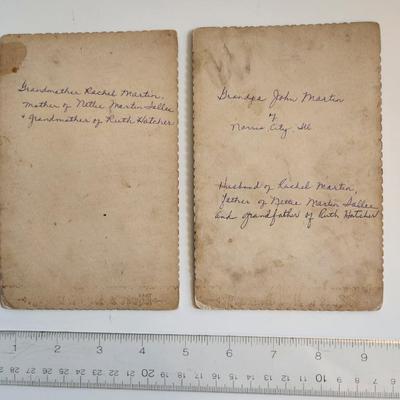 Grandmother Rachel Martin,
mother of Nettie Martin Sallee
+ grandmother of Ruth Hatcher
Grandpa John Martin
of
Norris City Ill
Husband of Rachel Martin,
father of Nettie Martin Sallee
and grandfather of Ruth Hatcher
1 2 3 4 5 6 7 8 9
28 27 26 25 24 23 22 21 20 19 18 17 16 15 14 13 12 11 10 9 8 7 6 5